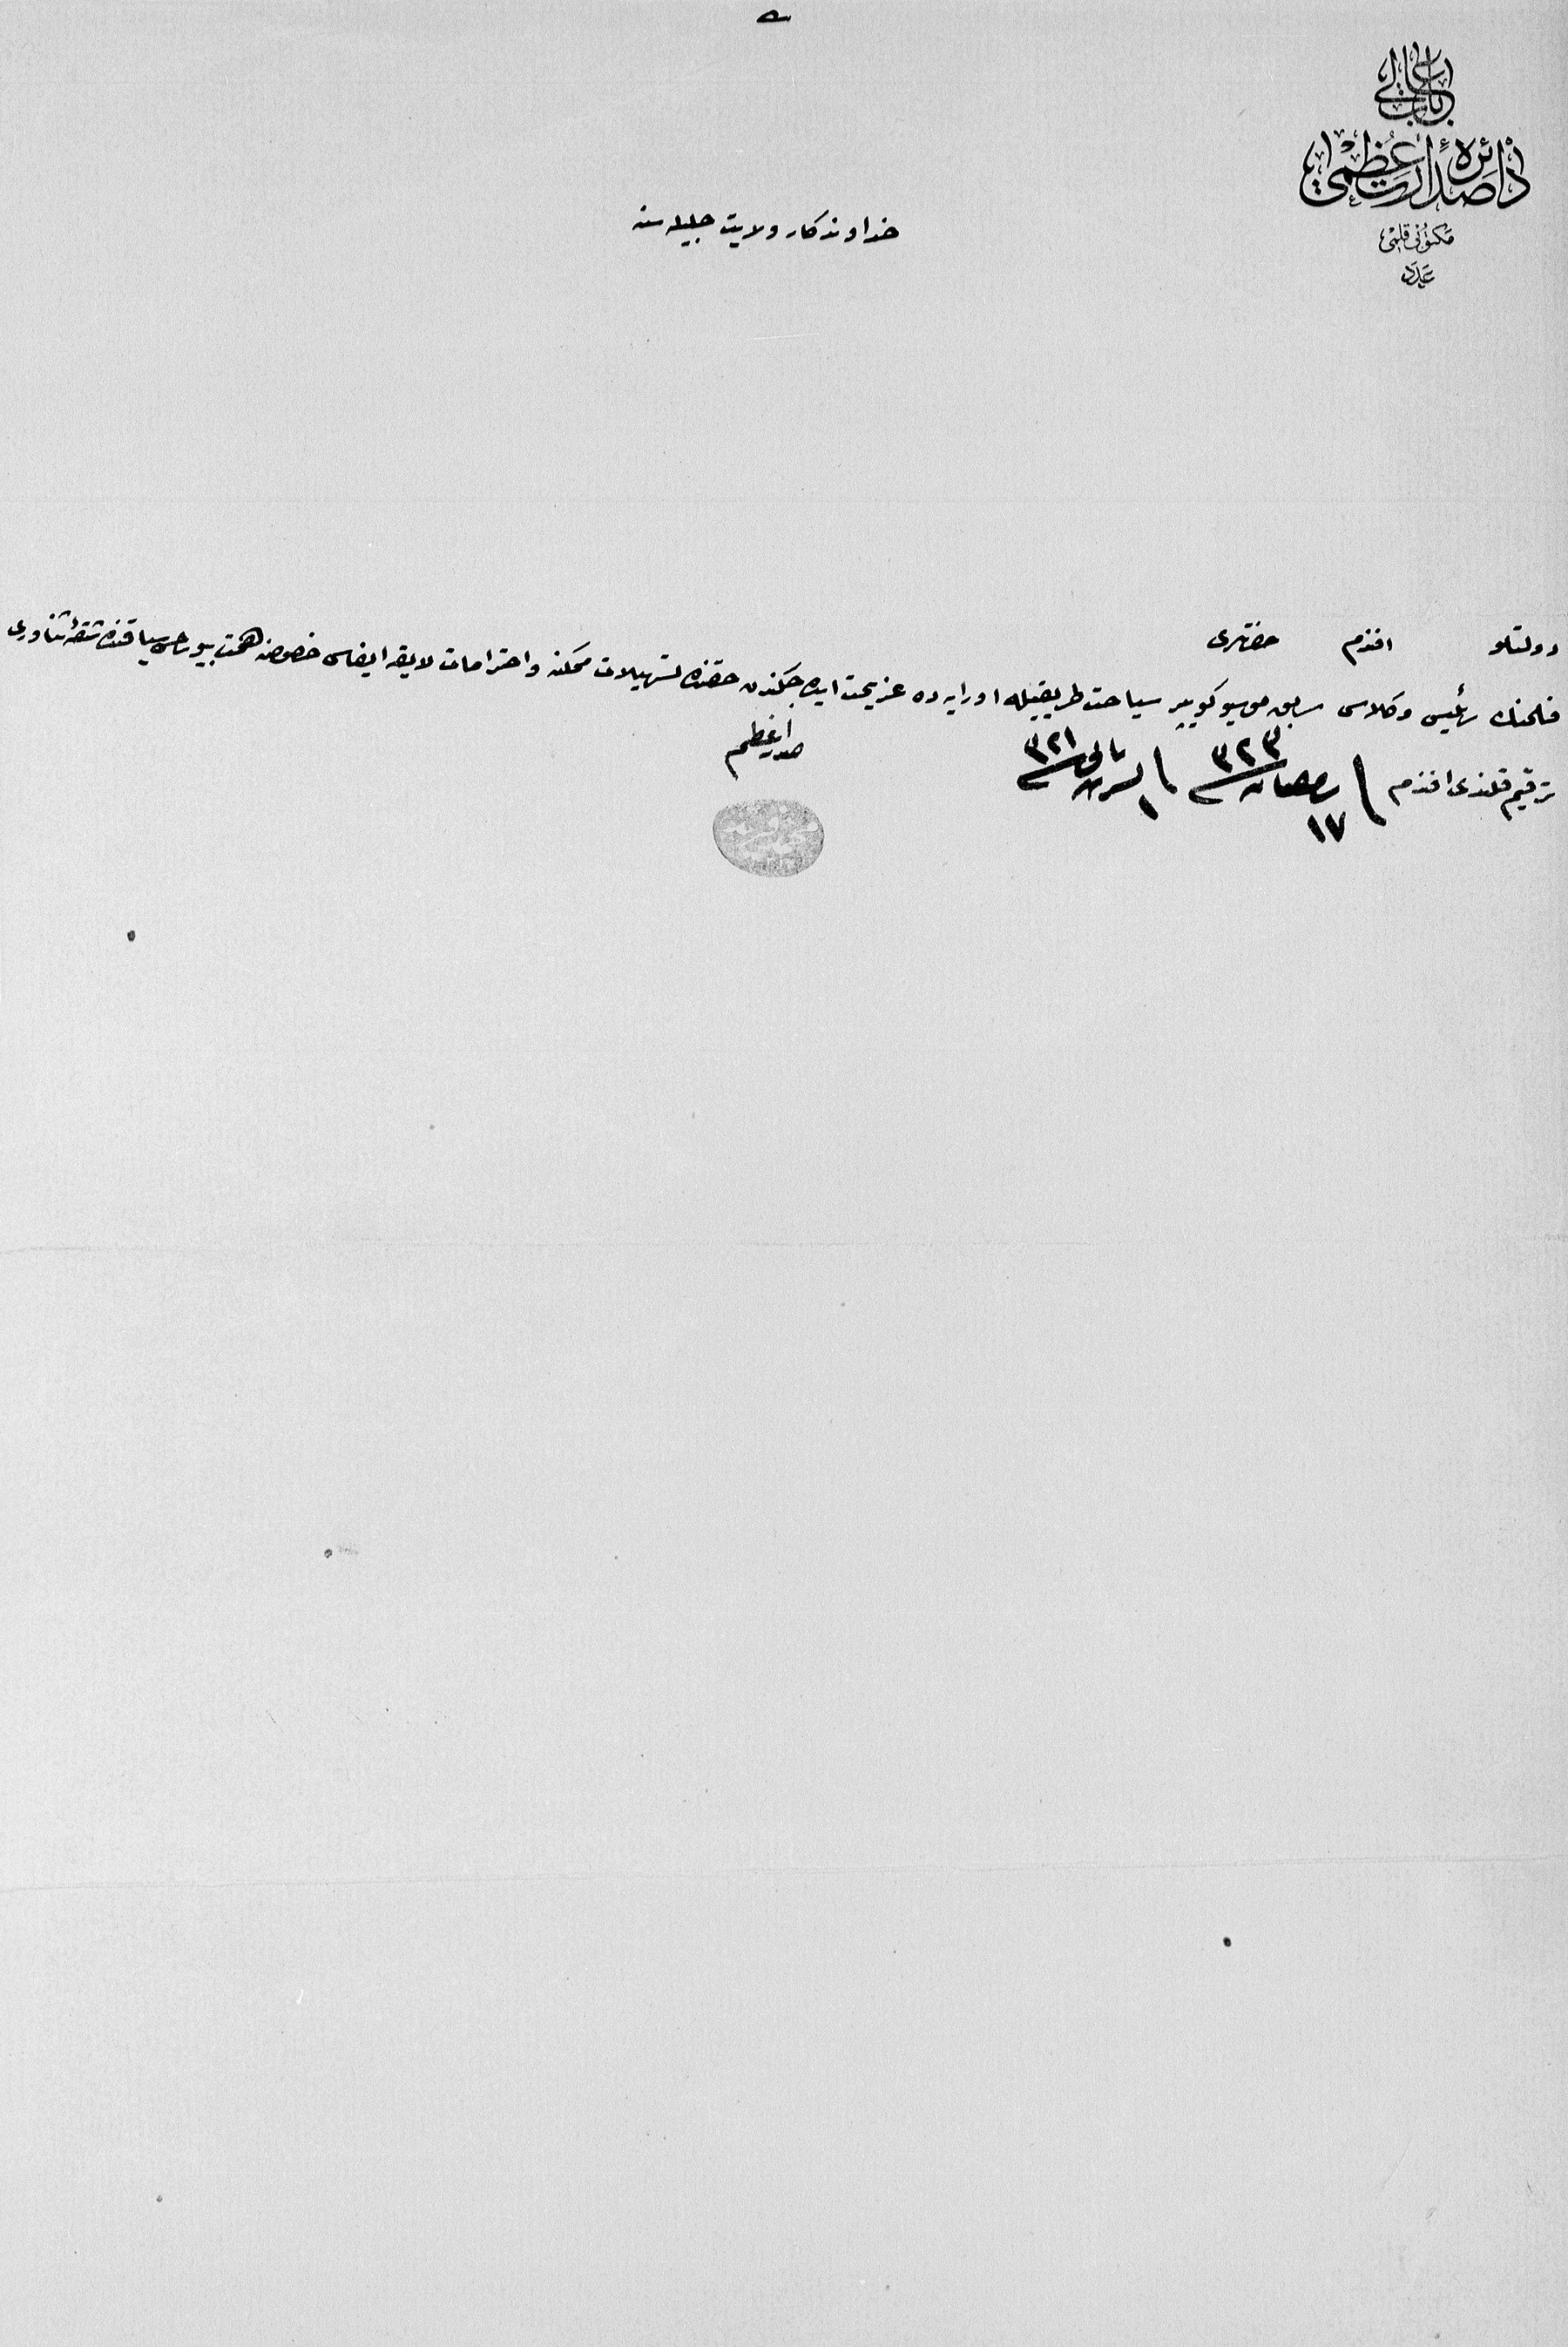 باب عالی
دائرهٔ صدارت عظمی
مکتوبی قلمی
عدد
خداوندکار ولایت جلیله سنه
دولتلو افندم حضرتلری
فلمنك رئیس وکلاسی سابق موسیو کویپر سیاحت طریقیله اورایه ده عزیمت ایده جکندن حقنده تسهیلات ممکنه و احترامات لایقه ایفاسی خصوصنه همت بیورلمسی سیاقنده شقهٔ ثناوری
ترقیم قلندی افندم
١٧ رمضان سنه ٣٢٣
١ تشرین ثانی سنه ٣٢١
صدر اعظم